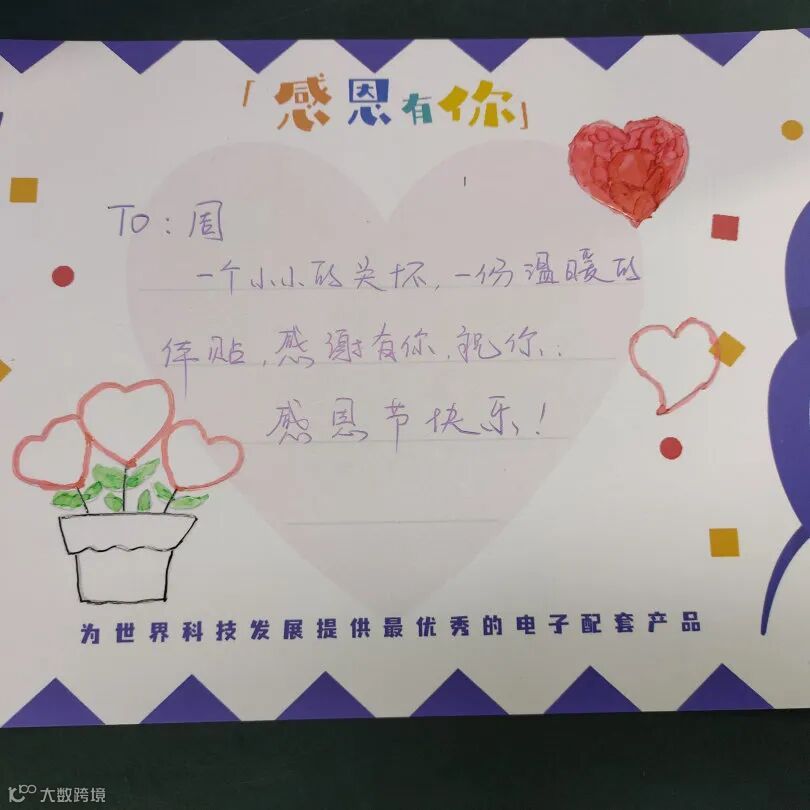 「感恩有你」
TO：周
一个小小的关怀，一份温暖的
体贴，感谢有你，祝你：
感恩节快乐！
为世界科技发展提供最优秀的电子配套产品
大数跨境